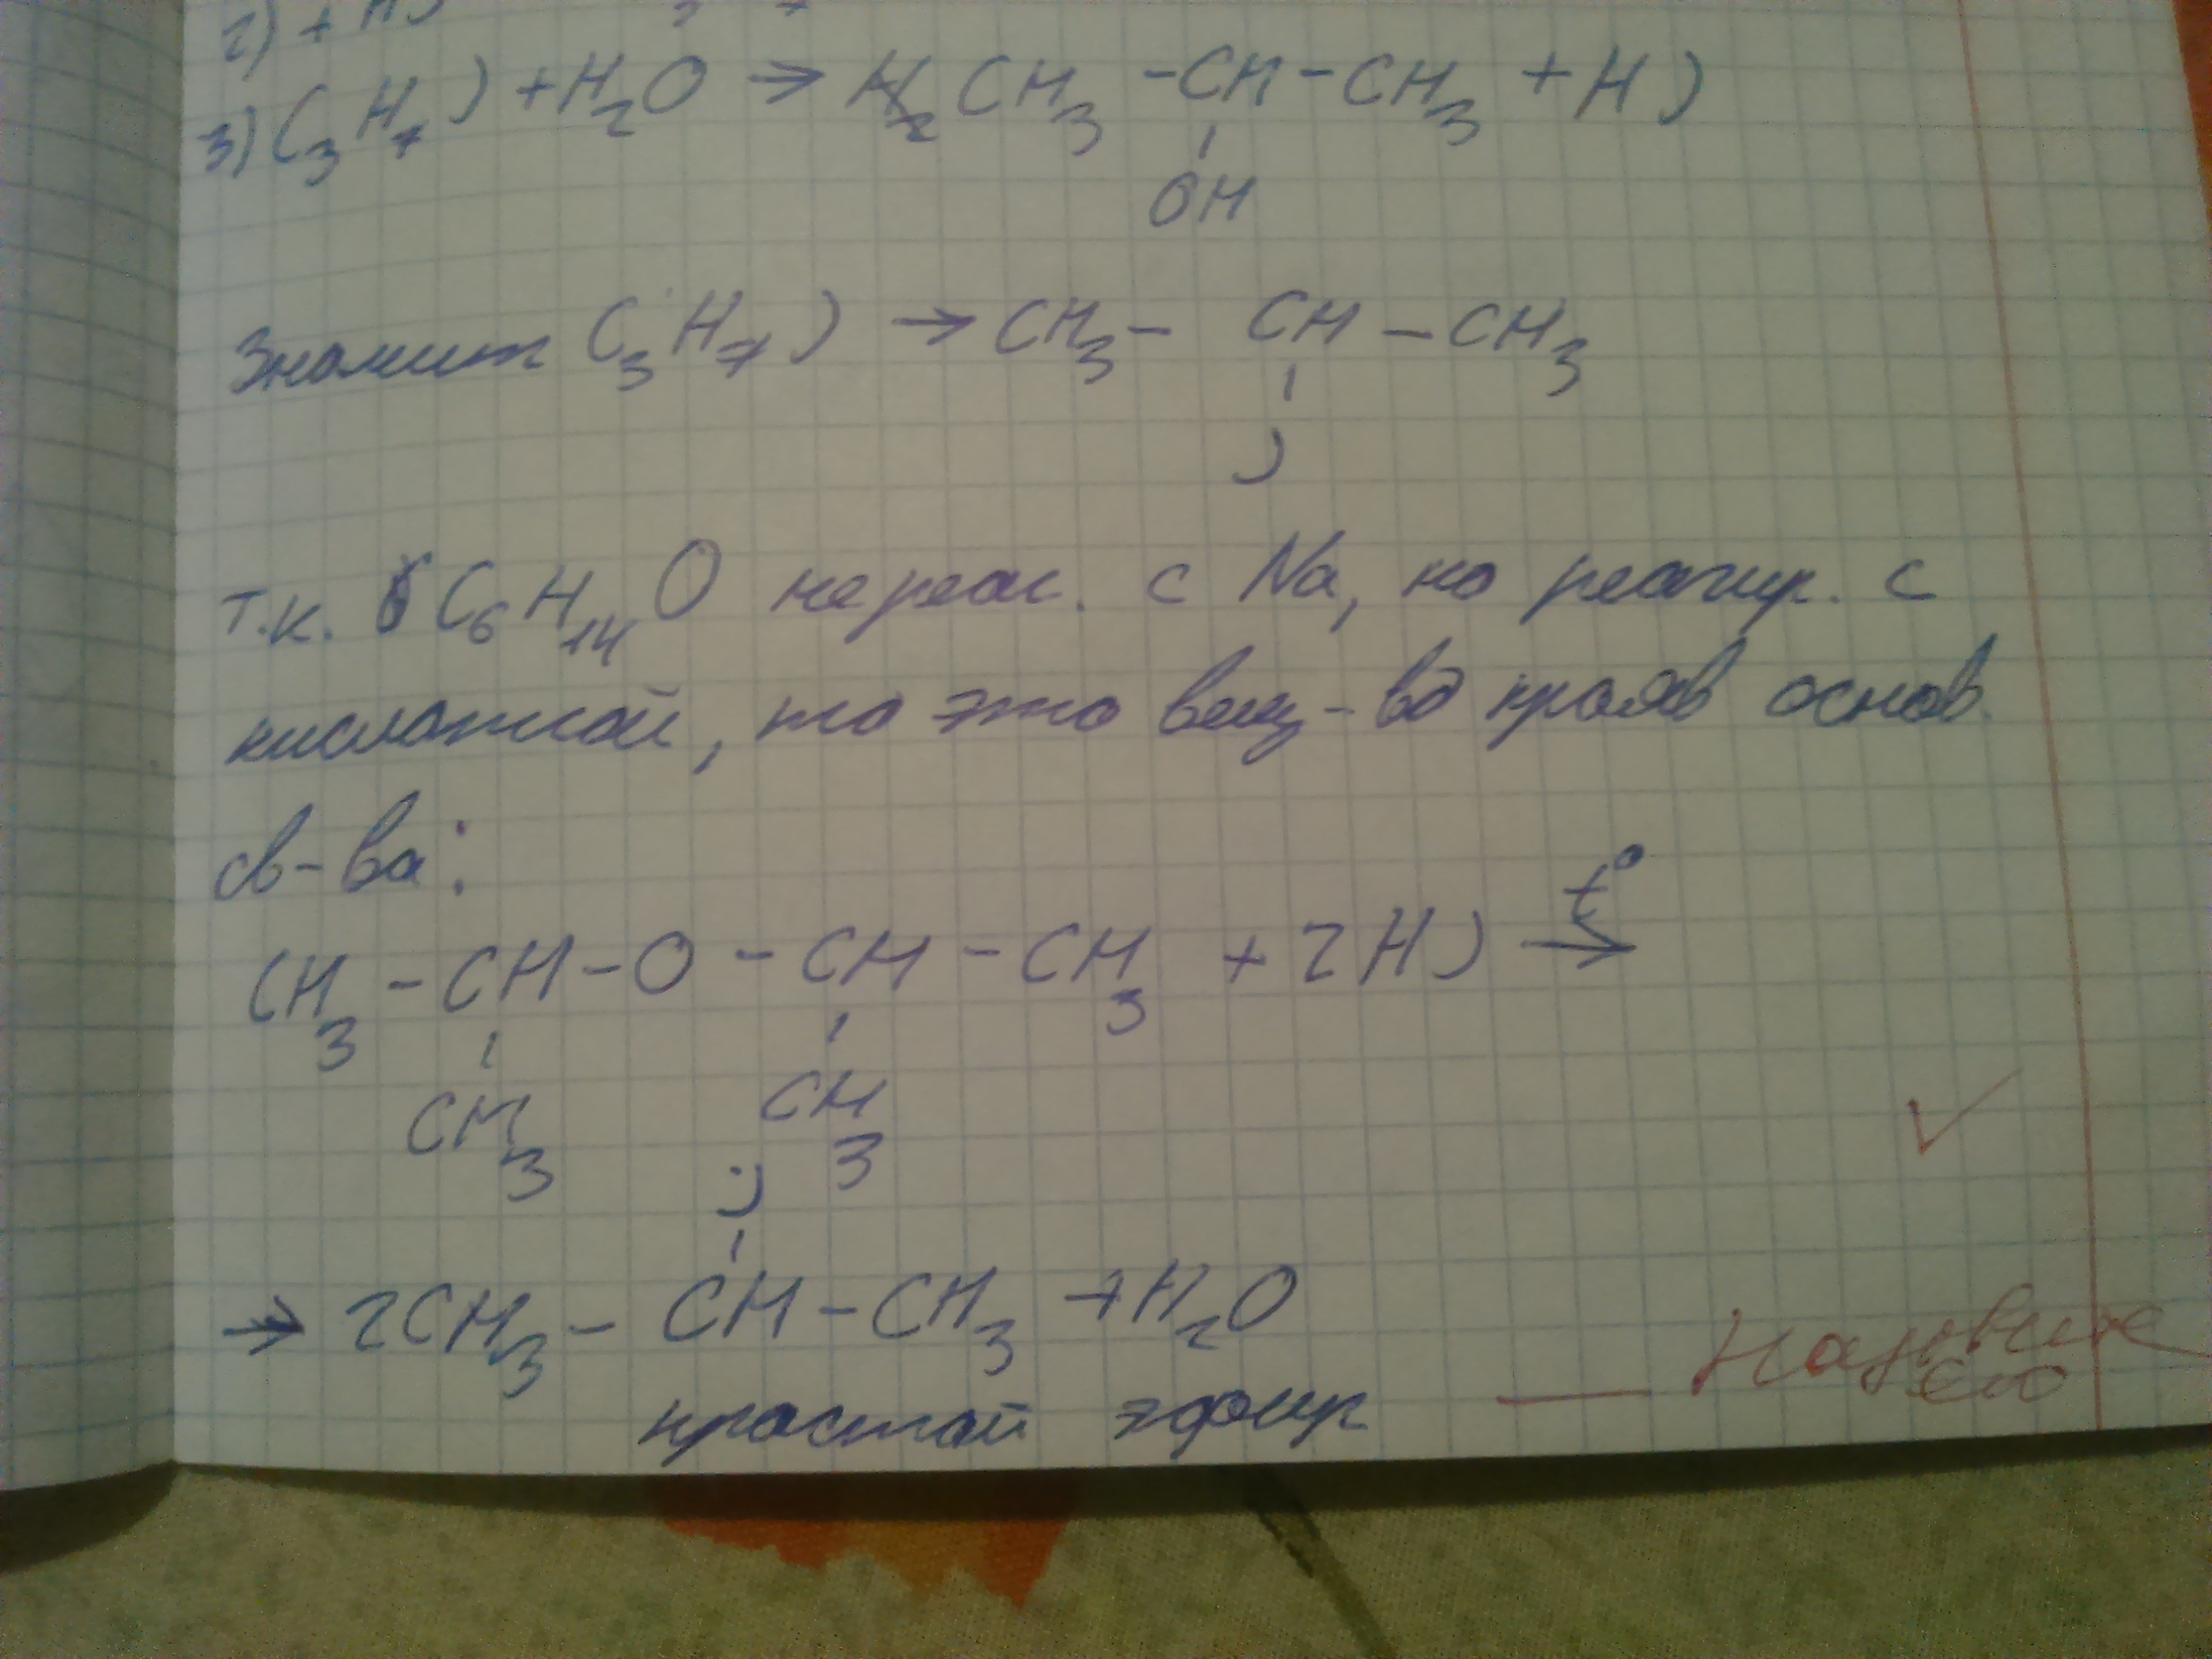 2) + HJ
3) C3H7J + H2O → CH3 - CH - CH3 + HJ
OH
Значит C3H7J → CH3 - CH - CH3
J
т.к. C6H14O не реаг. с Na, но реагир. с
кислотой, то это вещ-во прояв основ.
св-ва:
CH3 - CH - O - CH - CH3 + 2HJ t° →
CH3 CH3
J
→ 2CH3 - CH - CH3 + H2O
простой эфир
— Название его